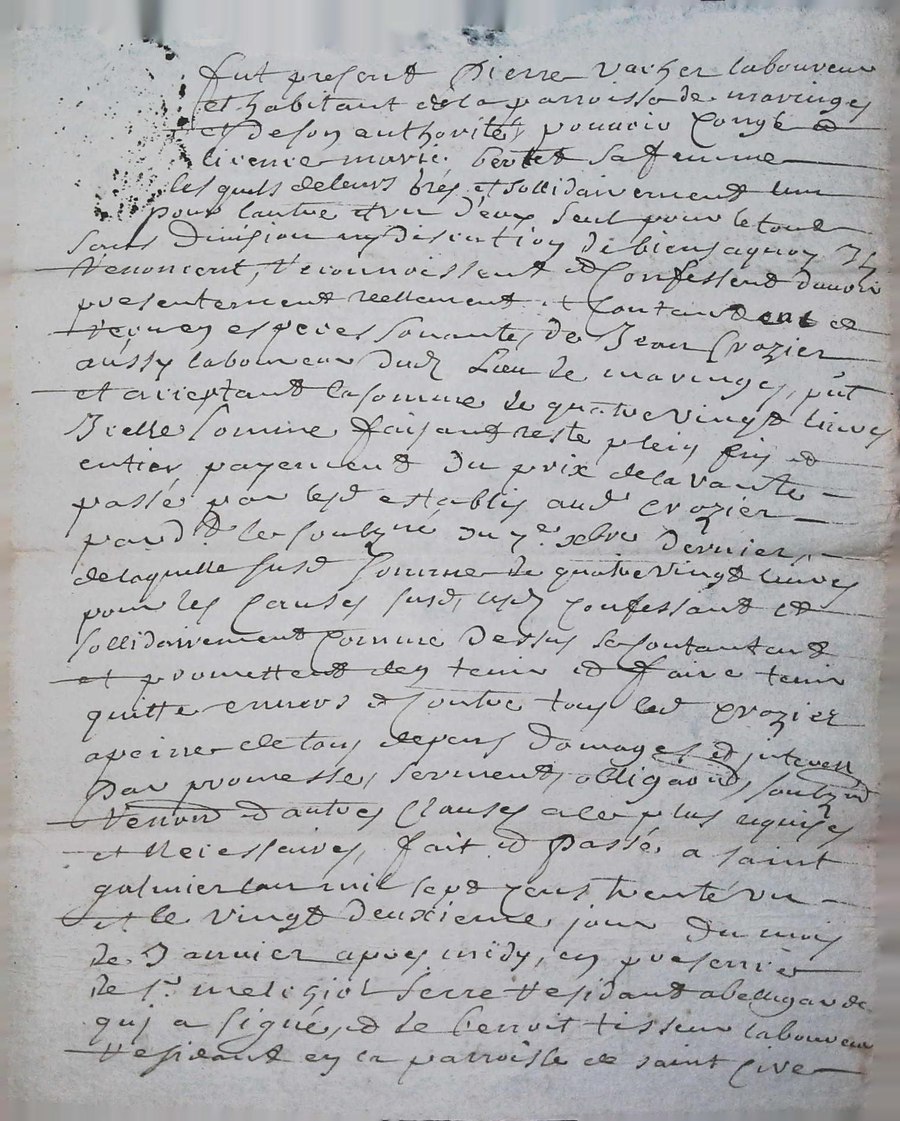 fut present Pierre vacher laboureur
et habitant de la parroisse de maringes
et de son authorité, pouvoir congé et
licence marie bertet sa femme
lesquels de leurs grés et sollidairement l'un
pour l'autre et un d'eux seul pour le tout
sans division ny discution de biens aquoy ils
renoncent, reconnoissent et confessent d'avoir
presentement reellement et contant eut et
reçu en especes sonante, de Jean Crozier
aussy laboureur dud Lieu de maringes, pnt
et acceptant la somme de quatre vingt livres
Icelle somme faisant reste plein fin et
entier payement du prix de la vante
passé par lesd establis aud crozier
pard.t le soubzné du 7e xbre dernier,
de laquelle susd somme de quatre vingt livres
pour les causes susd, lesd confessant et
sollidairement comme dessus se contantant
et promettent l'en tenir et faire tenir
quitte envers et contre tous led crozier
a peine de tous depens domages et interets
Par promesse, serment, obligaon, soubzon
Renon et autres clauses a ce plus requises
et Necessaires, fait et Passé a saint
galmier l'an mil sept cens trente un
et le vingt deuxieme jour du mois
de Janvier apres midy, en presence
de Sr melchior serre residant a bellegarde
qui a signé, et de benoit tisseur laboureur
residant en la parroisse de saint Cire